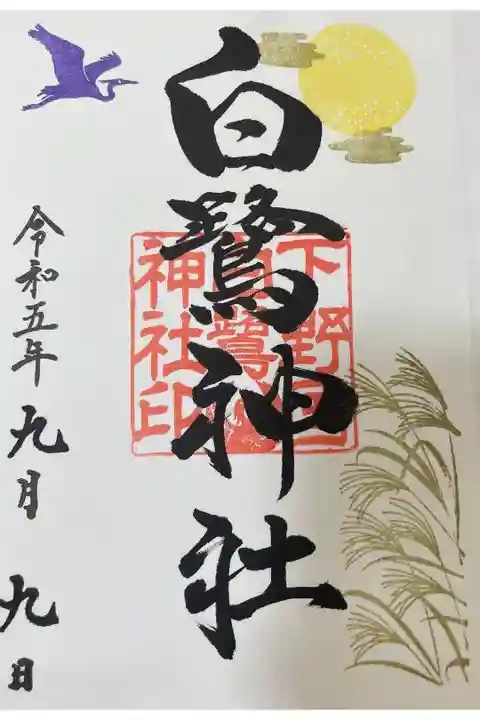 白鷺神社
下野国
白鷺
神社印
令和五年 九月 九日